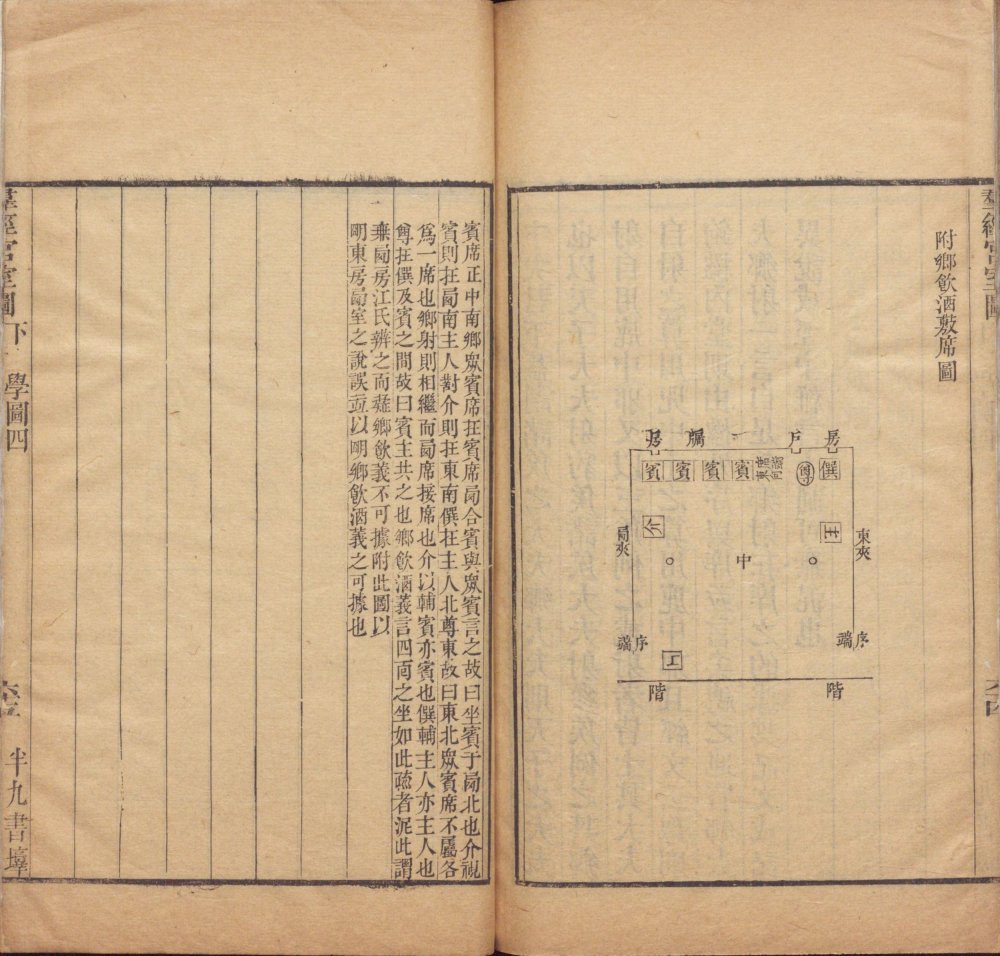 附鄉飲酒敷席圖
房
戶
牖
房
僎
尊
賓
賓
賓
賓
介
主
東夾
卥夾
中
序端
序端
工
階
階
賓席正中南鄉眾賓席在賓席卥合賓與眾賓言之故曰坐賓于卥北也介視
賓則在卥南主人對介則在東南僎在主人北尊東故曰東北眾賓席不屬各
爲一席也鄉射則相繼而卥席接席也介以輔賓亦賓也僎輔主人亦主人也
尊在僎及賓之間故曰賓主共之也鄉飲酒義言四面之坐如此疏者泥此謂
無卥房江氏辨之而疑鄉飲義不可據附此圖以
明東房卥室之說誤並以明鄉飲酒義之可據也
羣經宮室圖下 學圖四 六五 半九書塾